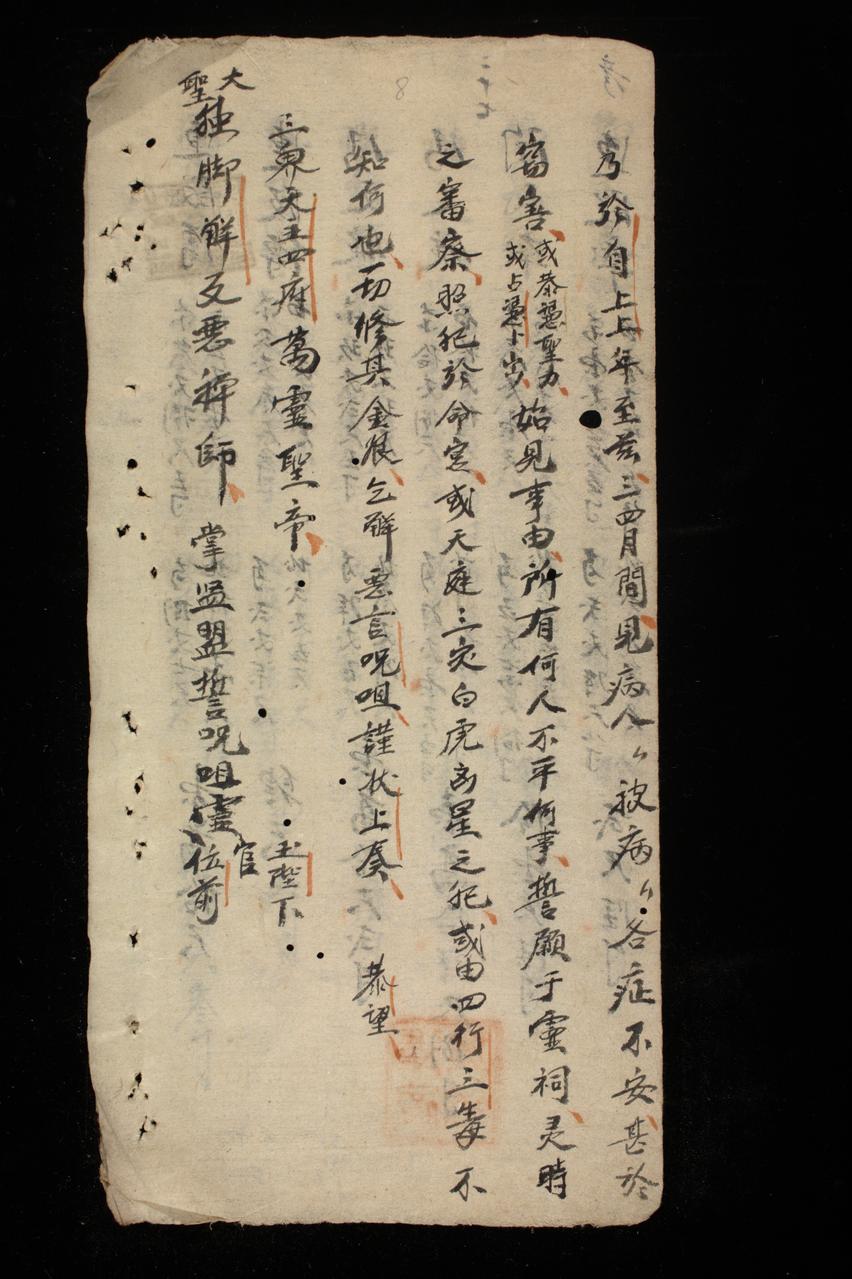 乃於自上上年至茲三四月間見病人〻被病〻各症不安甚於
窩害
或恭憑聖力
或占憑卜
始見事由所有何人不平何事誓願于靈祠灵時
之審察照犯於命宮或天庭三灾白虎凶星之犯或由四行三毒不
知何也一切修其金銀乞解惡言呪咀謹状上奏 恭望
三界天主四府萬靈聖帝 玉陛下
大聖独脚解反惡禅師 掌监盟誓呪咀靈官位前
8
二十七